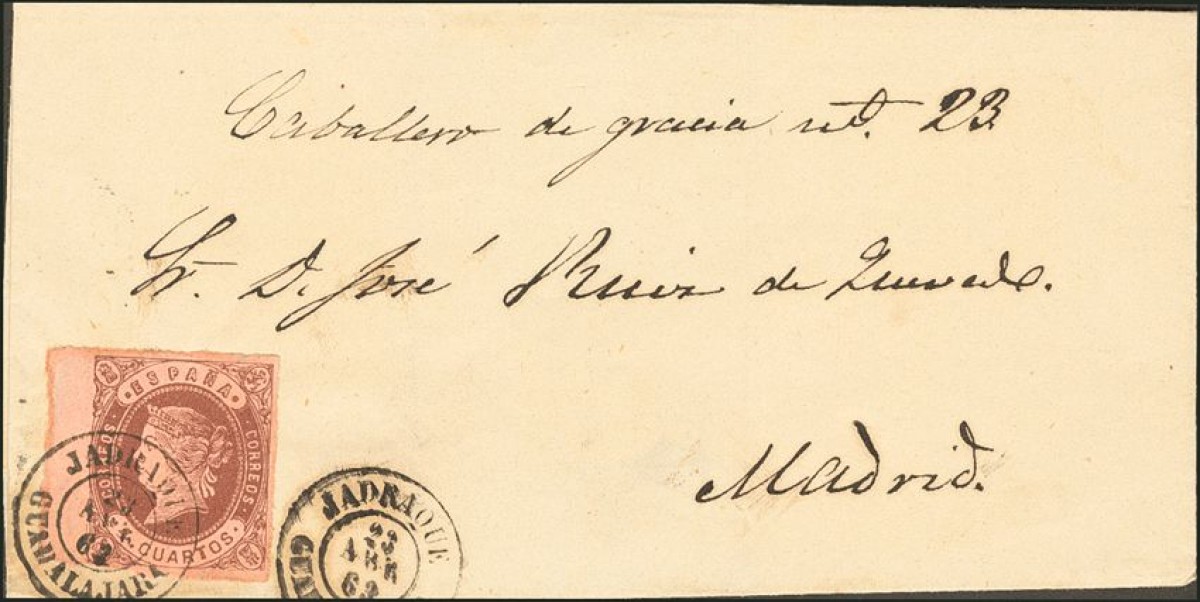 Caballero de gracia nº. 23.
Sr. D. José Ruiz de Quevedo.
Madrid.
ESPAÑA
CORREOS
CUARTOS
JADRAQUE
23
ABR
62
GUADALAJARA
JADRAQUE
23
ABR
62
GU